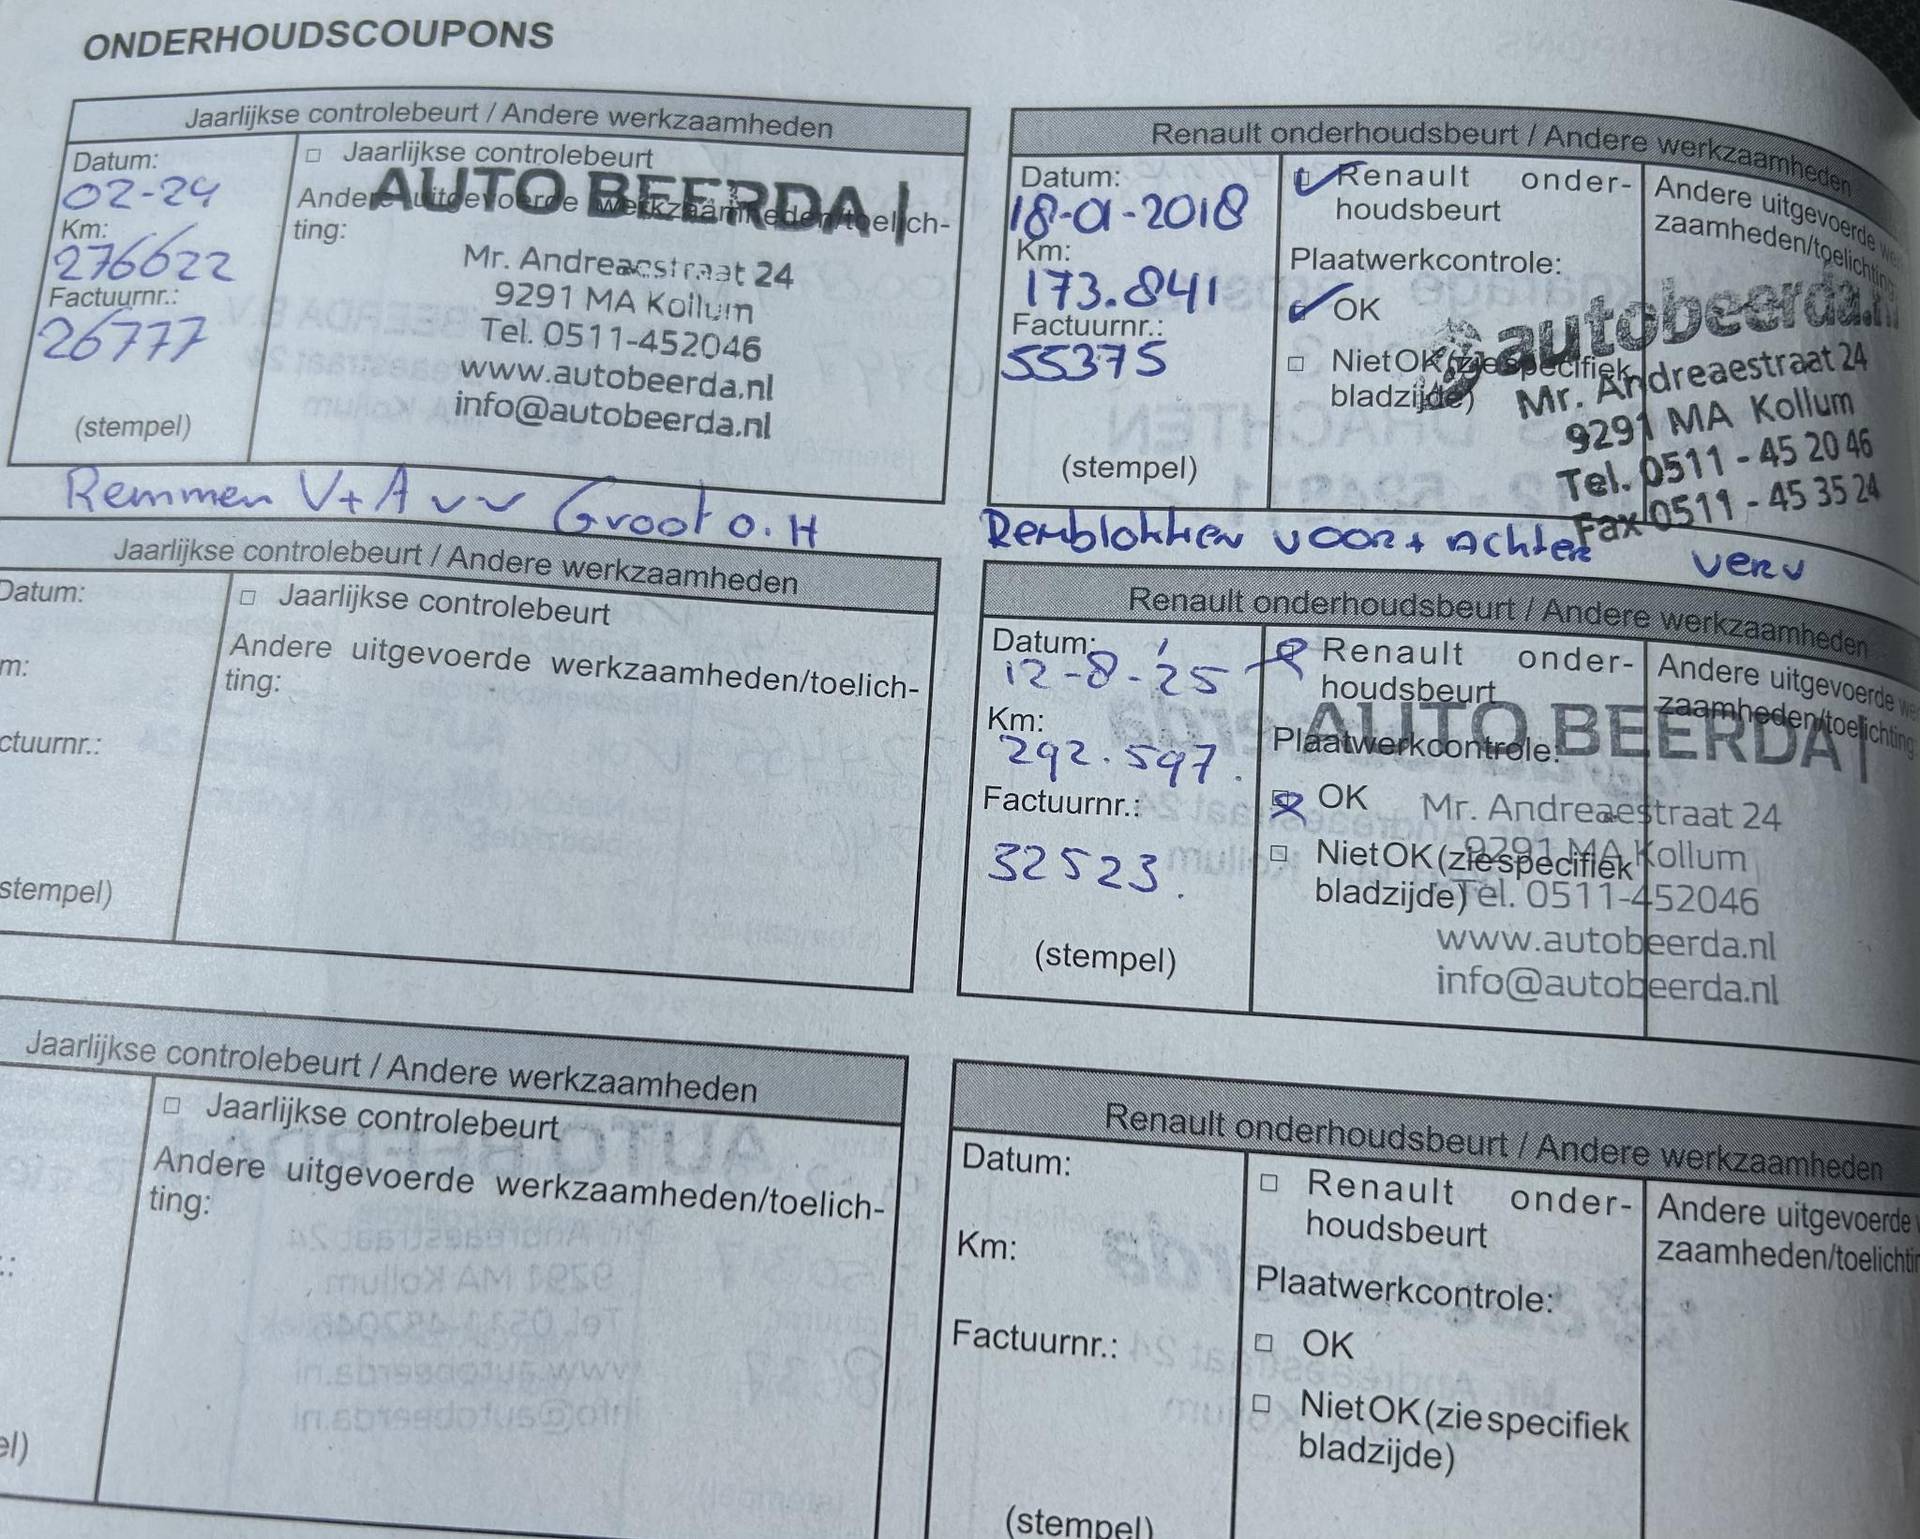 ONDERHOUDSCOUPONS
Jaarlijkse controlebeurt / Andere werkzaamheden
Datum:
02-24
Km:
276622
Factuurnr.:
26777
(stempel)
□ Jaarlijkse controlebeurt
Andere uitgevoerde werkzaamheden/toelich-
ting:
AUTO BEERDA |
Mr. Andreaestraat 24
9291 MA Kollum
Tel. 0511-452046
www.autobeerda.nl
info@autobeerda.nl
Remmen V+A vv Groot o.H
Renault onderhoudsbeurt / Andere werkzaamheden
Datum:
18-01-2018
Km:
173.841
Factuurnr.:
55375
(stempel)
Renault onder-
houdsbeurt
Plaatwerkcontrole:
OK
□ Niet OK (zie specifiek
bladzijde)
Andere uitgevoerde
zaamheden/toelichting
autobeerda.nl
Mr. Andreaestraat 24
9291 MA Kollum
Tel. 0511 - 45 20 46
Fax 0511 - 45 35 24
Remblokken voor + Achter verv
Jaarlijkse controlebeurt / Andere werkzaamheden
Datum:
m:
ctuurnr.:
stempel)
□ Jaarlijkse controlebeurt
Andere uitgevoerde werkzaamheden/toelich-
ting:
Renault onderhoudsbeurt / Andere werkzaamheden
Datum:
12-8-'25
Km:
292.597.
Factuurnr.:
32523.
(stempel)
Renault onder-
houdsbeurt
Plaatwerkcontrole:
OK
□ Niet OK (zie specifiek
bladzijde)
Andere uitgevoerde we
zaamheden/toelichting
AUTO BEERDA |
Mr. Andreaestraat 24
9291 MA Kollum
Tel. 0511-452046
www.autobeerda.nl
info@autobeerda.nl
Jaarlijkse controlebeurt / Andere werkzaamheden
.:
el)
□ Jaarlijkse controlebeurt
Andere uitgevoerde werkzaamheden/toelich-
ting:
Renault onderhoudsbeurt / Andere werkzaamheden
Datum:
Km:
Factuurnr.:
(stempel)
□ Renault onder-
houdsbeurt
Plaatwerkcontrole:
□ OK
□ Niet OK (zie specifiek
bladzijde)
Andere uitgevoerde
zaamheden/toelichtin